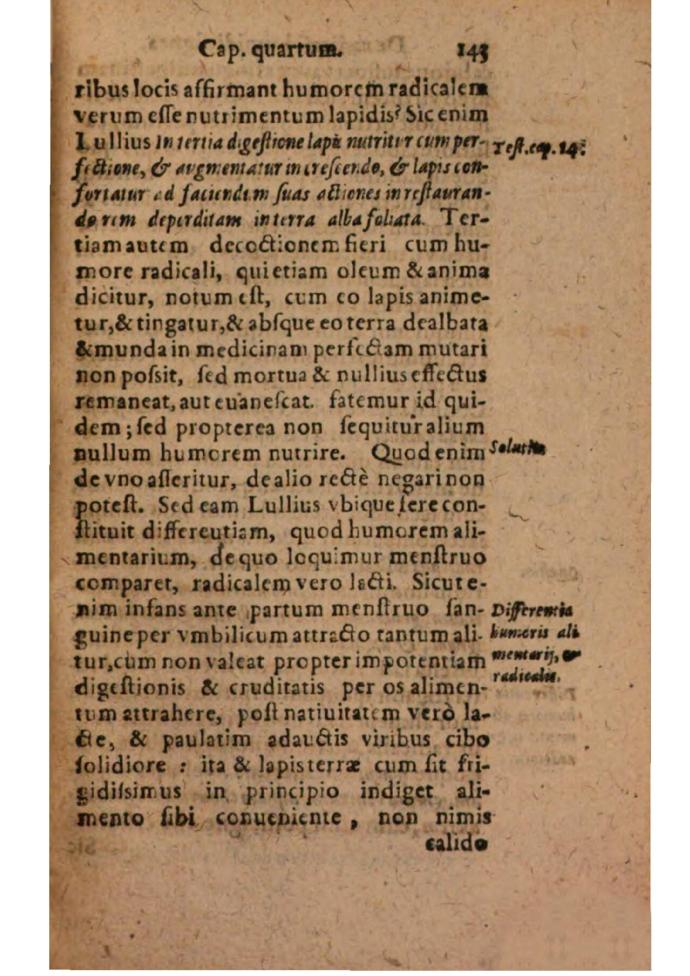 Cap. quartum. 143
ribus locis affirmant humorem radicalem
verum eſſe nutrimentum lapidis? Sic enim
Lullius In tertia digeſtione lapis nutritur cum per-
fectione, & augmentatur in creſcendo, & lapis con-
fortatur ad faciendum ſuas actiones in reſtauran-
do rem deperditam in terra alba foliata. Ter-
tiam autem decoctionem fieri cum hu-
more radicali, qui etiam oleum & anima
dicitur, notum eſt, cum eo lapis anime-
tur, & tingatur, & abſque eo terra dealbata
& munda in medicinam perfectam mutari
non poſsit, ſed mortua & nullius effectus
remaneat, aut euaneſcat. fatemur id qui-
dem; ſed propterea non ſequitur alium
nullum humorem nutrire. Quod enim
de vno aſſeritur, de alio rectè negari non
poteſt. Sed eam Lullius vbique fere con-
ſtituit differeutiam, quod humorem ali-
mentarium, de quo loquimur menſtruo
comparet, radicalem vero lacti. Sicut e-
nim infans ante partum menſtruo ſan-
guine per vmbilicum attracto tantum ali-
tur, cùm non valeat propter impotentiam
digeſtionis & cruditatis per os alimen-
tum attrahere, poſt natiuitatem verò la-
cte, & paulatim adauctis viribus cibo
ſolidiore : ita & lapis terræ cum ſit fri-
gidiſsimus in principio indiget ali-
mento ſibi conueniente, non nimis
calido
Teſt. cap. 14.
Solutio
Differentia
humoris ali
mentarij, &
radicalis.